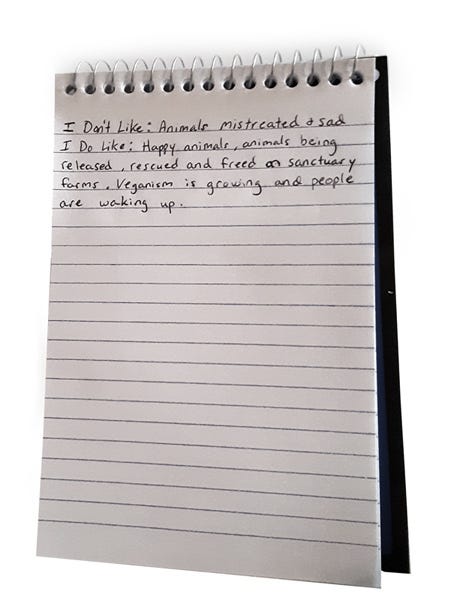 I Don't Like: Animals mistreated & sad
I Do Like: Happy animals, animals being
released, rescued and freed on sanctuary
farms. Veganism is growing and people
are waking up.